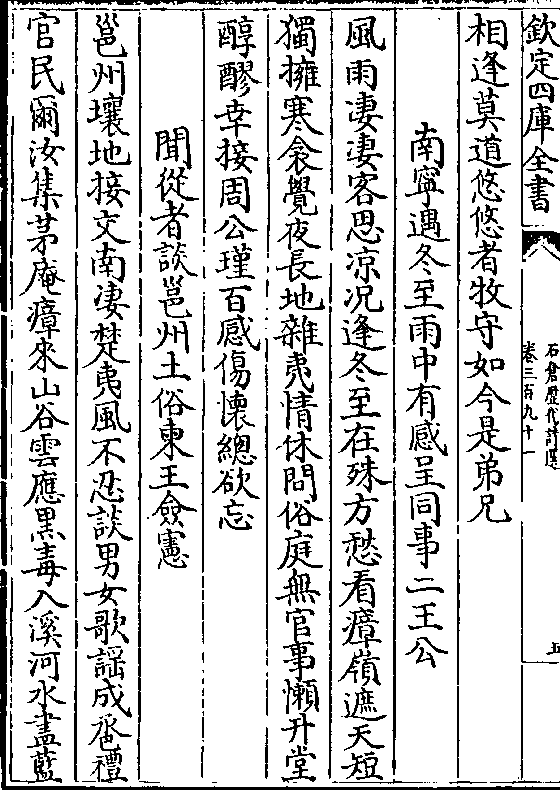 欽定四庫全書
石倉歷代詩選
卷三百九十一
五
相逢莫道悠悠者牧守如今是弟兄
南寧遇冬至雨中有感呈同事二王公
風雨凄凄客思凉况逢冬至在殊方愁看瘴嶺遮天短
獨擁寒衾覺夜長地雜夷情休問俗庭無官事懶升堂
醇醪幸接周公瑾百感傷懷總欲忘
聞從者談邕州土俗柬王僉憲
邕州壤地接交南凄楚夷風不忍談男女歌謡成畨禮
官民爾汝集茅庵瘴來山谷雲應黒毒入溪河水盡藍